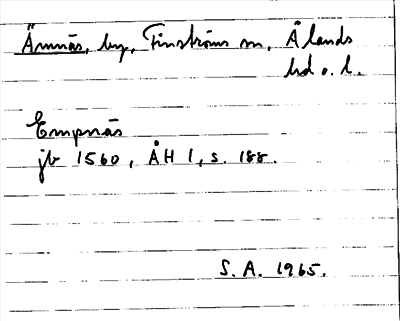 Ämnäs, by, Finströms sn, Ålands
hd o. l.
Empnäs
jb 1560, ÅH 1, s. 188.
S. A. 1965.